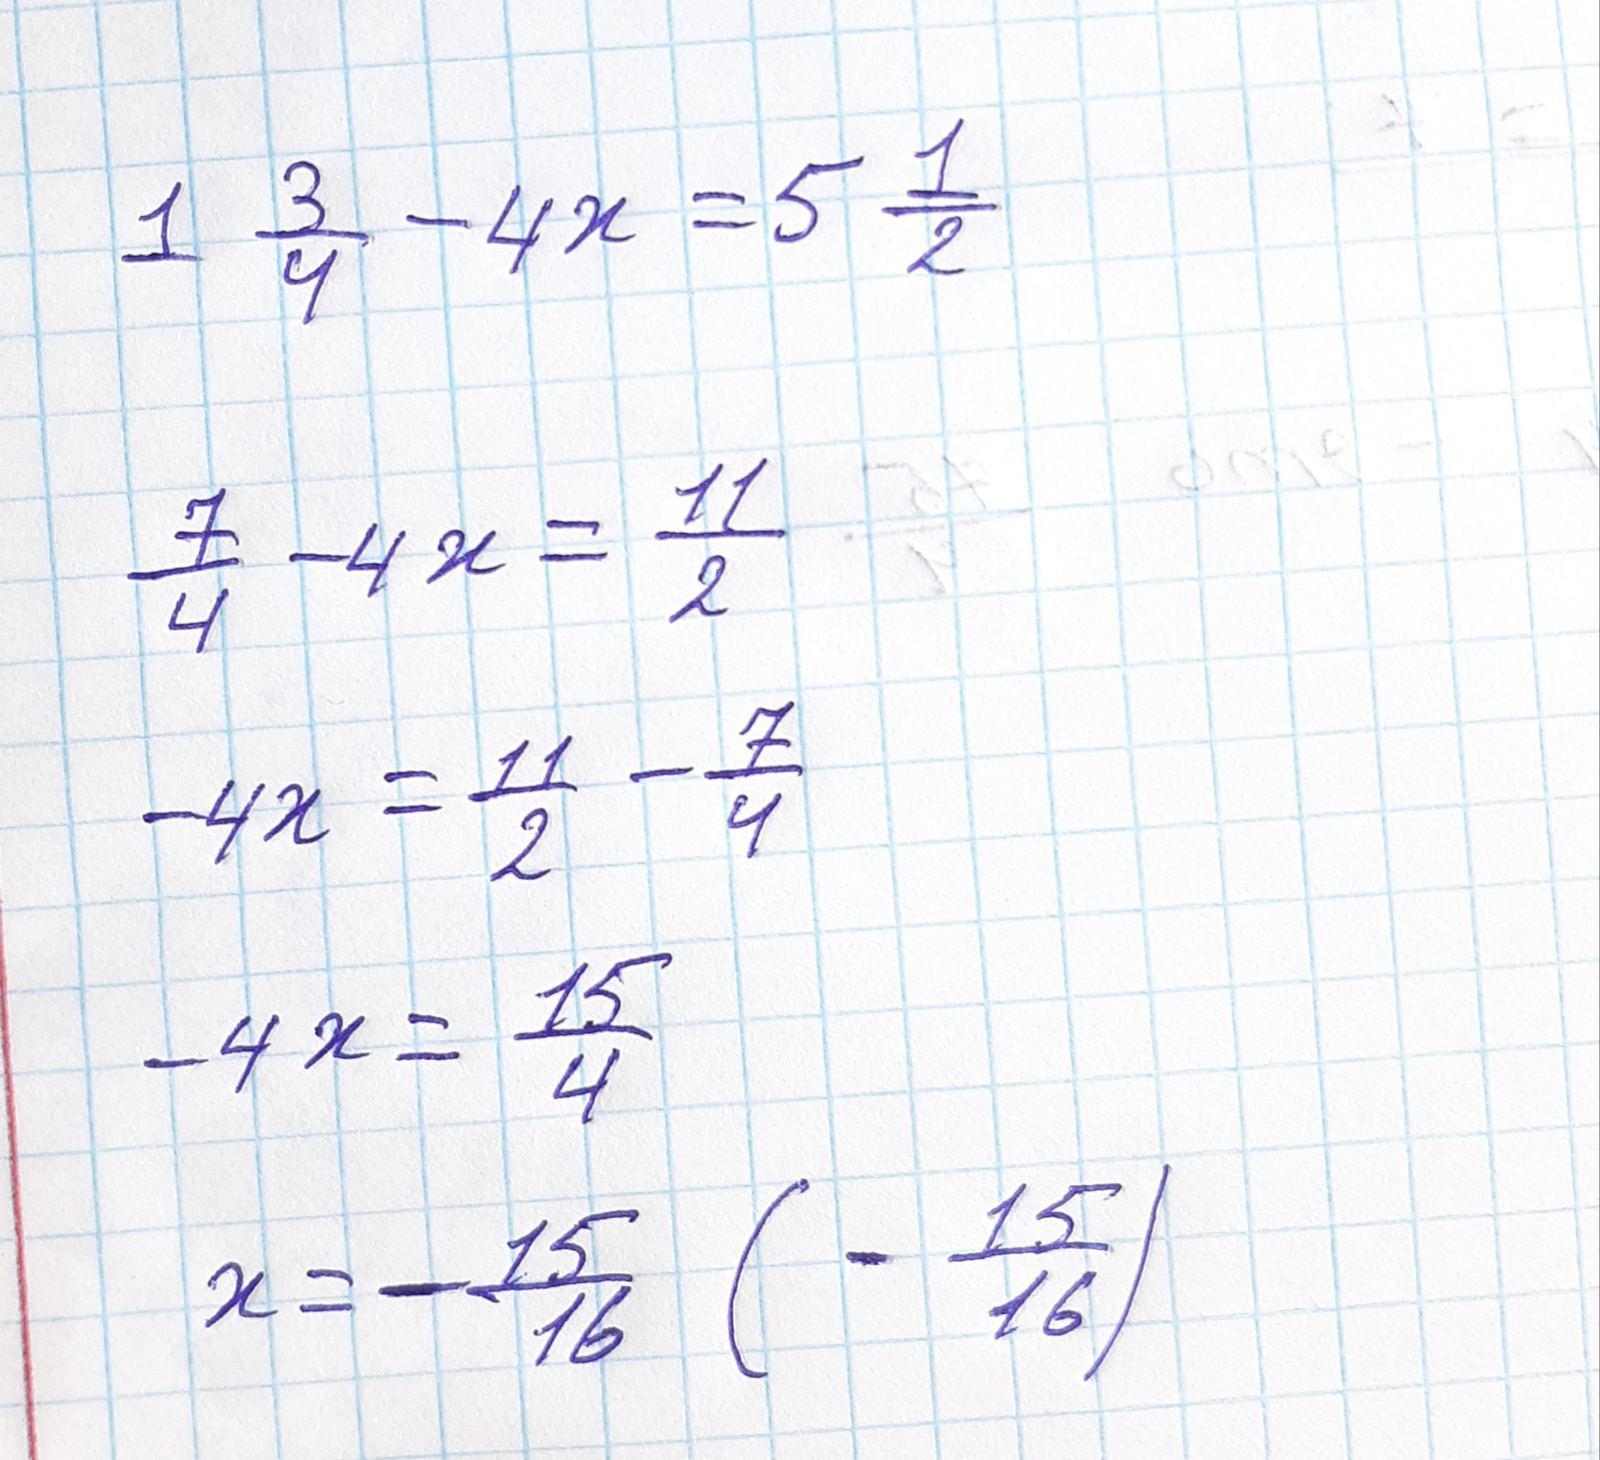 1 3/4 - 4x = 5 1/2
7/4 - 4x = 11/2
-4x = 11/2 - 7/4
-4x = 15/4
x = - 15/16 ( - 15/16 )